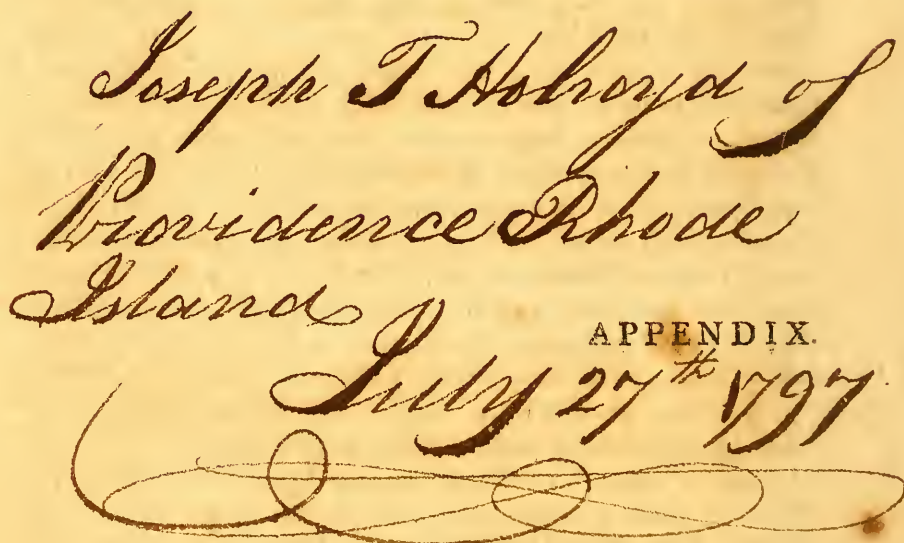 Joseph T Holroyd of
Providence Rhode
Island
APPENDIX.
July 27th 1797